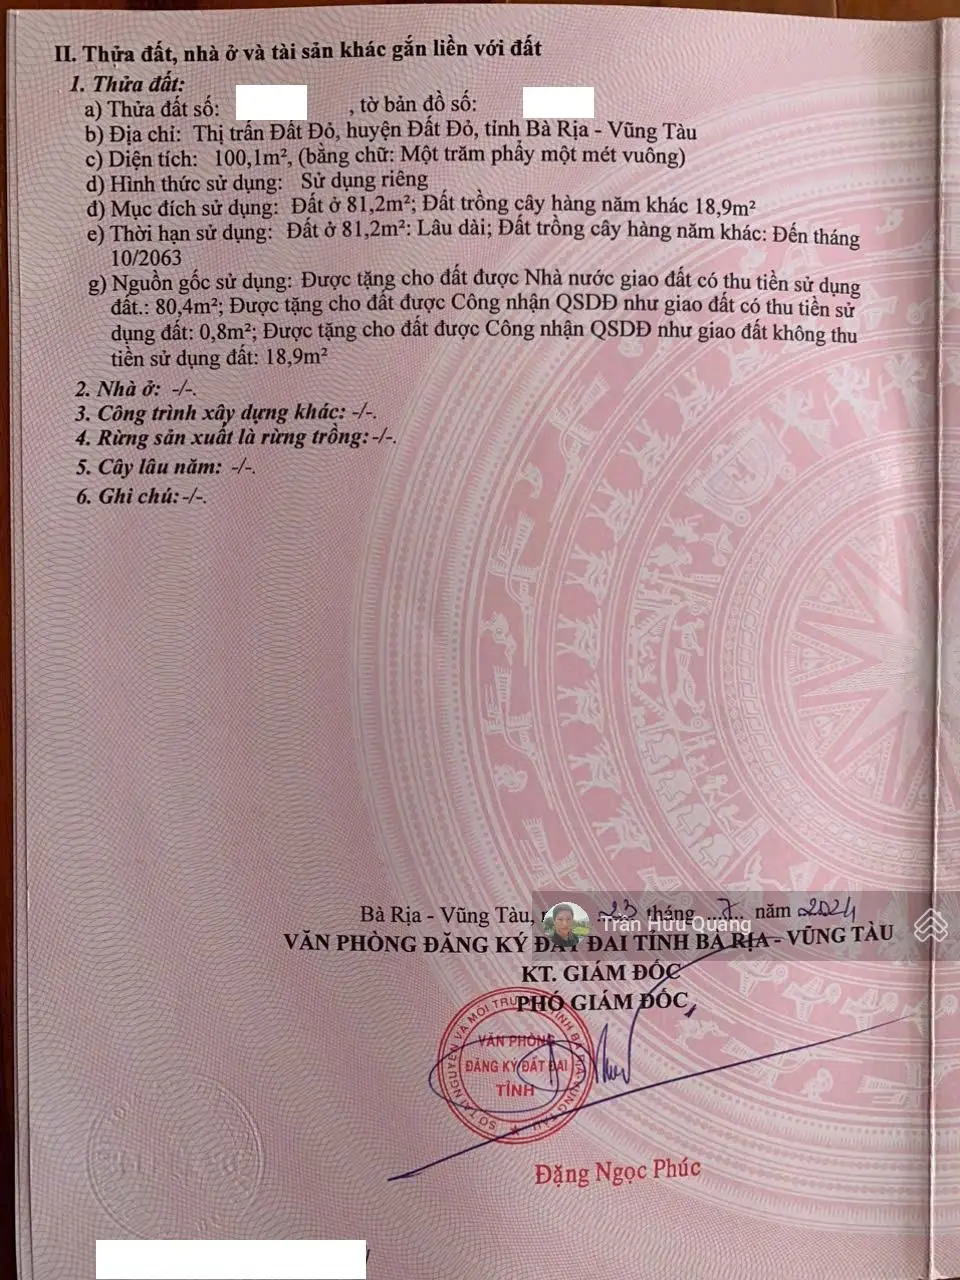 II. Thửa đất, nhà ở và tài sản khác gắn liền với đất
1. Thửa đất:
a) Thửa đất số: , tờ bản đồ số:
b) Địa chỉ: Thị trấn Đất Đỏ, huyện Đất Đỏ, tỉnh Bà Rịa - Vũng Tàu
c) Diện tích: 100,1m², (bằng chữ: Một trăm phẩy một mét vuông)
d) Hình thức sử dụng: Sử dụng riêng
đ) Mục đích sử dụng: Đất ở 81,2m²; Đất trồng cây hàng năm khác 18,9m²
e) Thời hạn sử dụng: Đất ở 81,2m²: Lâu dài; Đất trồng cây hàng năm khác: Đến tháng
10/2063
g) Nguồn gốc sử dụng: Được tặng cho đất được Nhà nước giao đất có thu tiền sử dụng
đất.: 80,4m²; Được tặng cho đất được Công nhận QSDĐ như giao đất có thu tiền sử
dụng đất: 0,8m²; Được tặng cho đất được Công nhận QSDĐ như giao đất không thu
tiền sử dụng đất: 18,9m²
2. Nhà ở: -/-.
3. Công trình xây dựng khác: -/-.
4. Rừng sản xuất là rừng trồng: -/-.
5. Cây lâu năm: -/-.
6. Ghi chú: -/-.
Bà Rịa - Vũng Tàu, 23 tháng ...7.. năm 2024
Trần Hữu Quang
VĂN PHÒNG ĐĂNG KÝ ĐẤT ĐAI TỈNH BÀ RỊA - VŨNG TÀU
KT. GIÁM ĐỐC
PHÓ GIÁM ĐỐC
SỞ TÀI NGUYÊN VÀ MÔI TRƯỜNG TỈNH BÀ RỊA - VŨNG TÀU
VĂN PHÒNG
ĐĂNG KÝ ĐẤT ĐAI
TỈNH
Đặng Ngọc Phúc